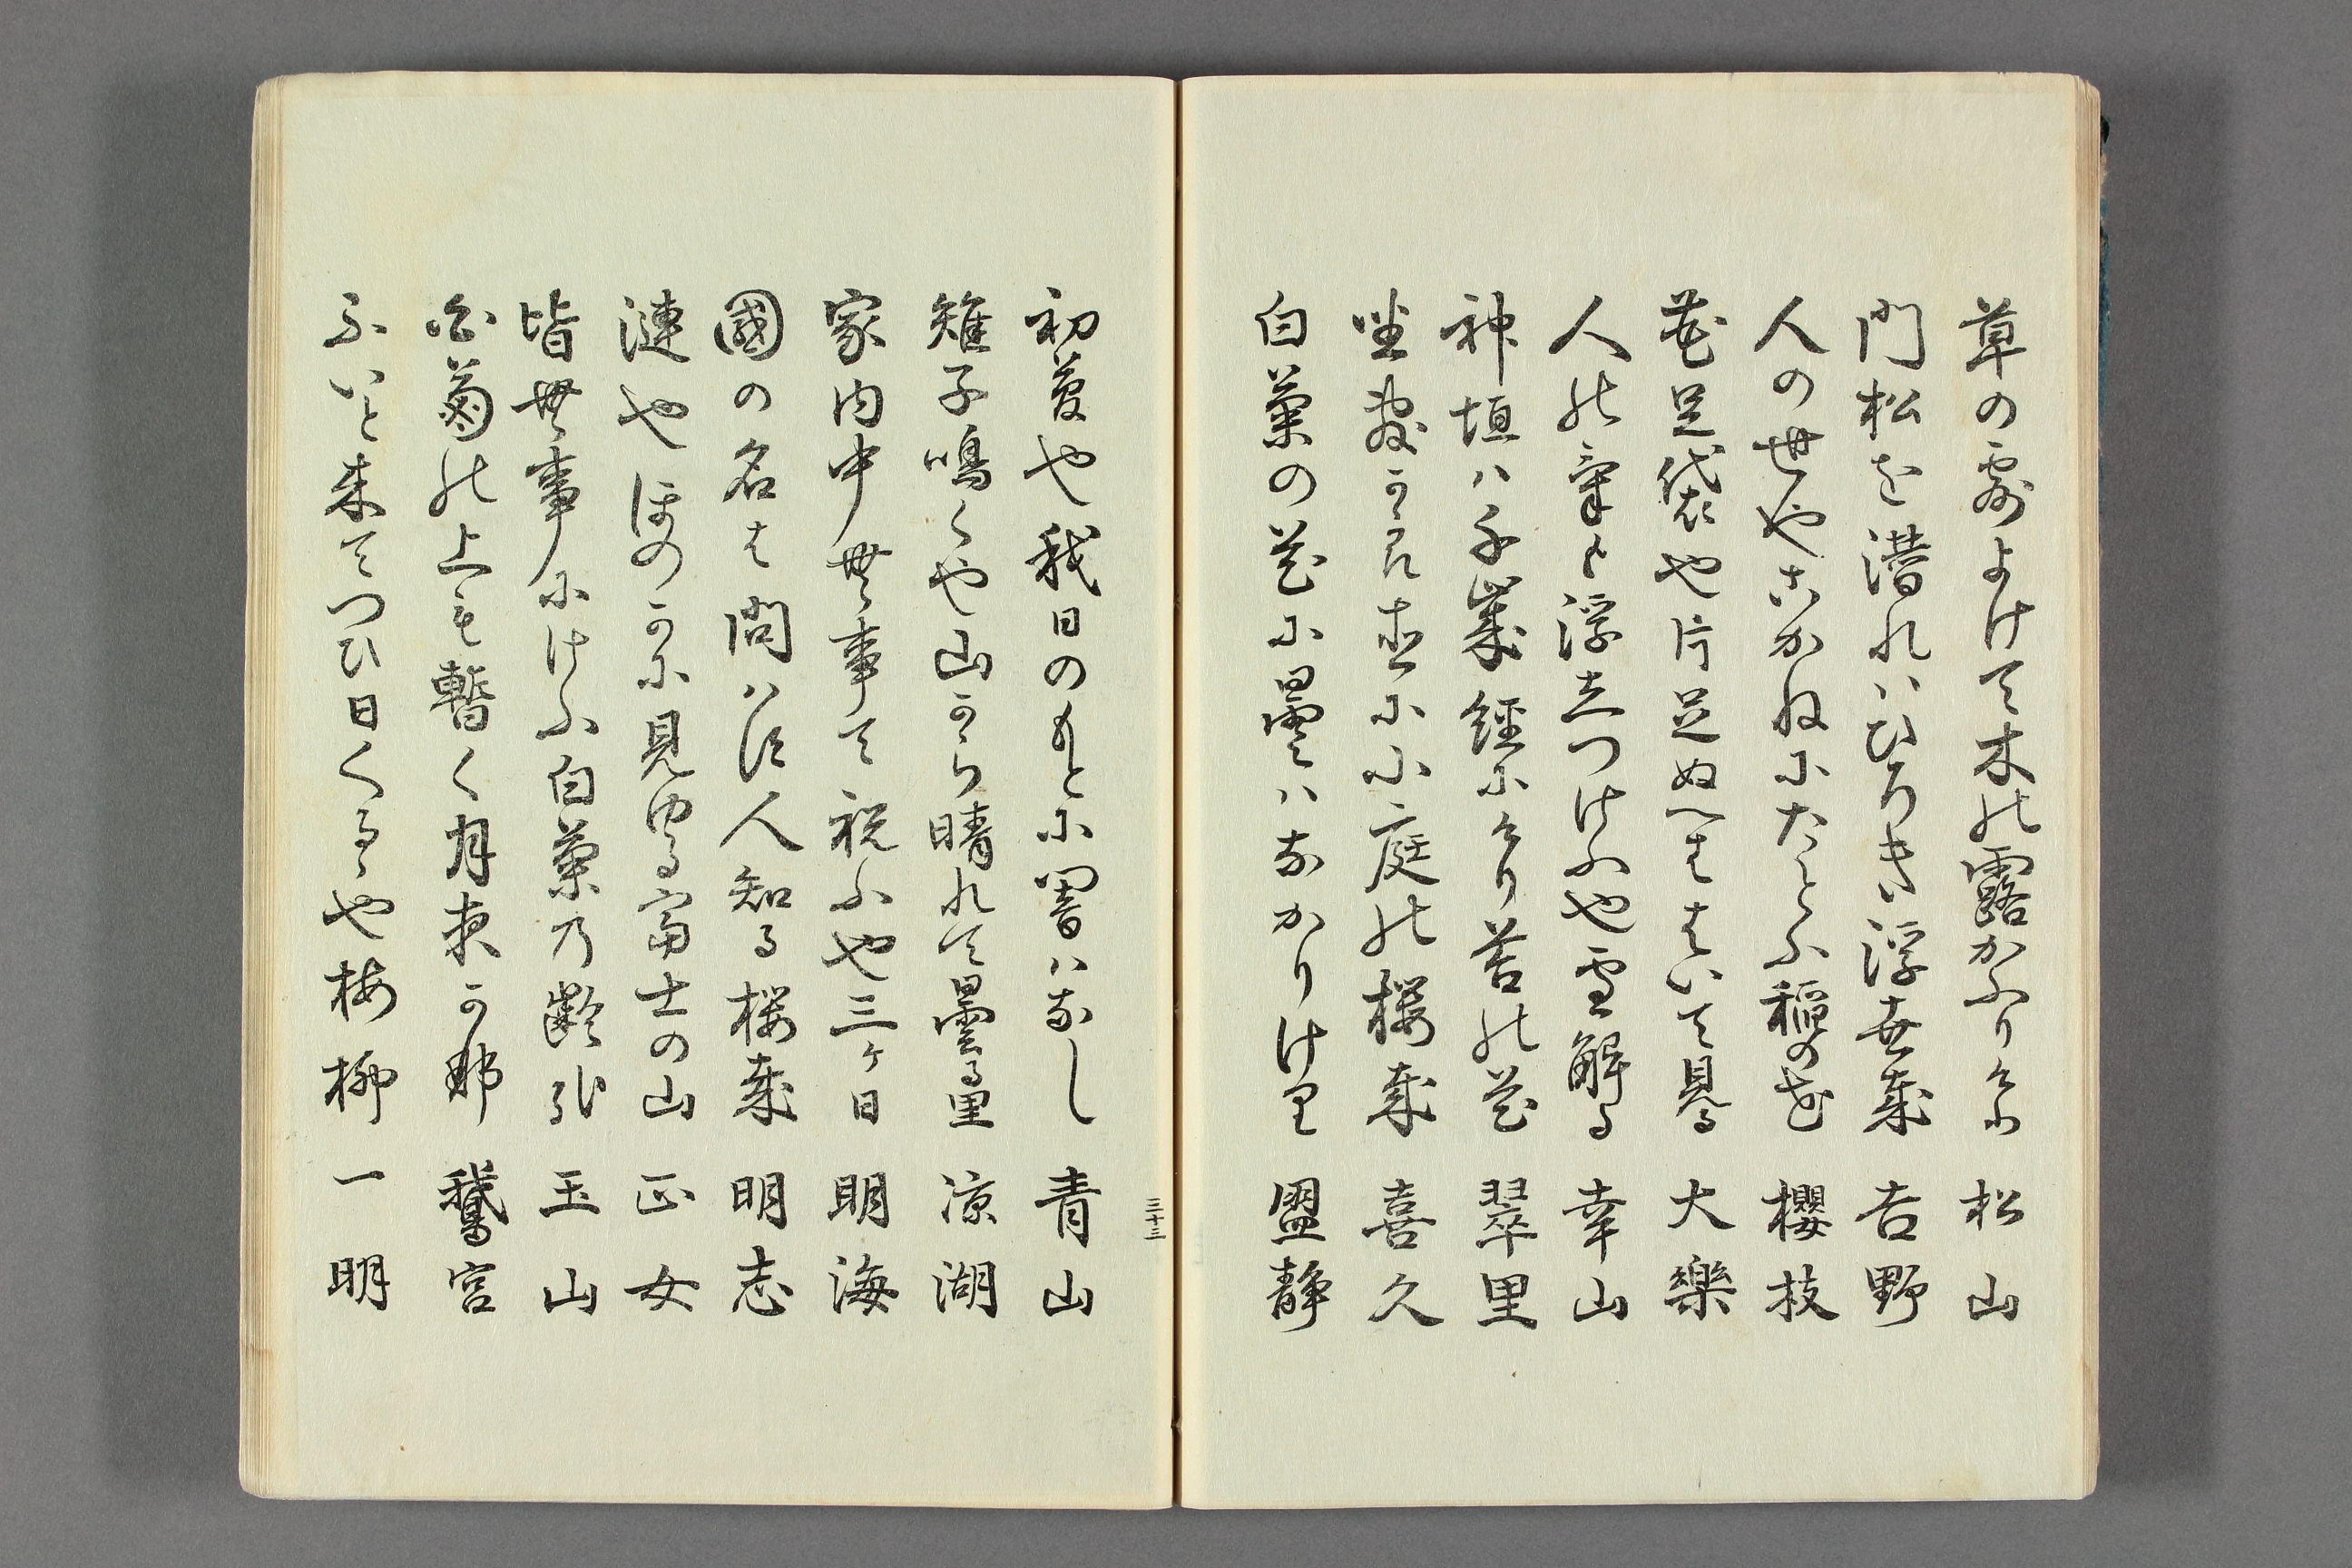 草の露よけて木の露かふりけり 松山
門松を潜れハひろき浮世哉 吉野
人の世やこかねにたとふ稲の花 櫻枝
革足袋や片足ぬへははいて見る 大樂
人の氣も浮立つけふや雪解る 幸山
神垣ハ千歳經にけり苔の花 翠里
坐敷から杢に小庭の桜哉 喜久
白菊の花に曇ハなかりけり 盟静
三十三
初夢や我日のもとに闇ハなし 青山
雉子鳴くや山から晴れて曇る里 涼湖
家内中無事て祝ふや三ヶ日 明海
國の名は問ハす人知る桜哉 明志
漣やほのかに見ゆる富士の山 正女
皆無事にけふ白菊乃齢非 玉山
白菊の上も暫く月夜か那 鵞宮
ふいと来てつひ日くるゝや梅柳 一明